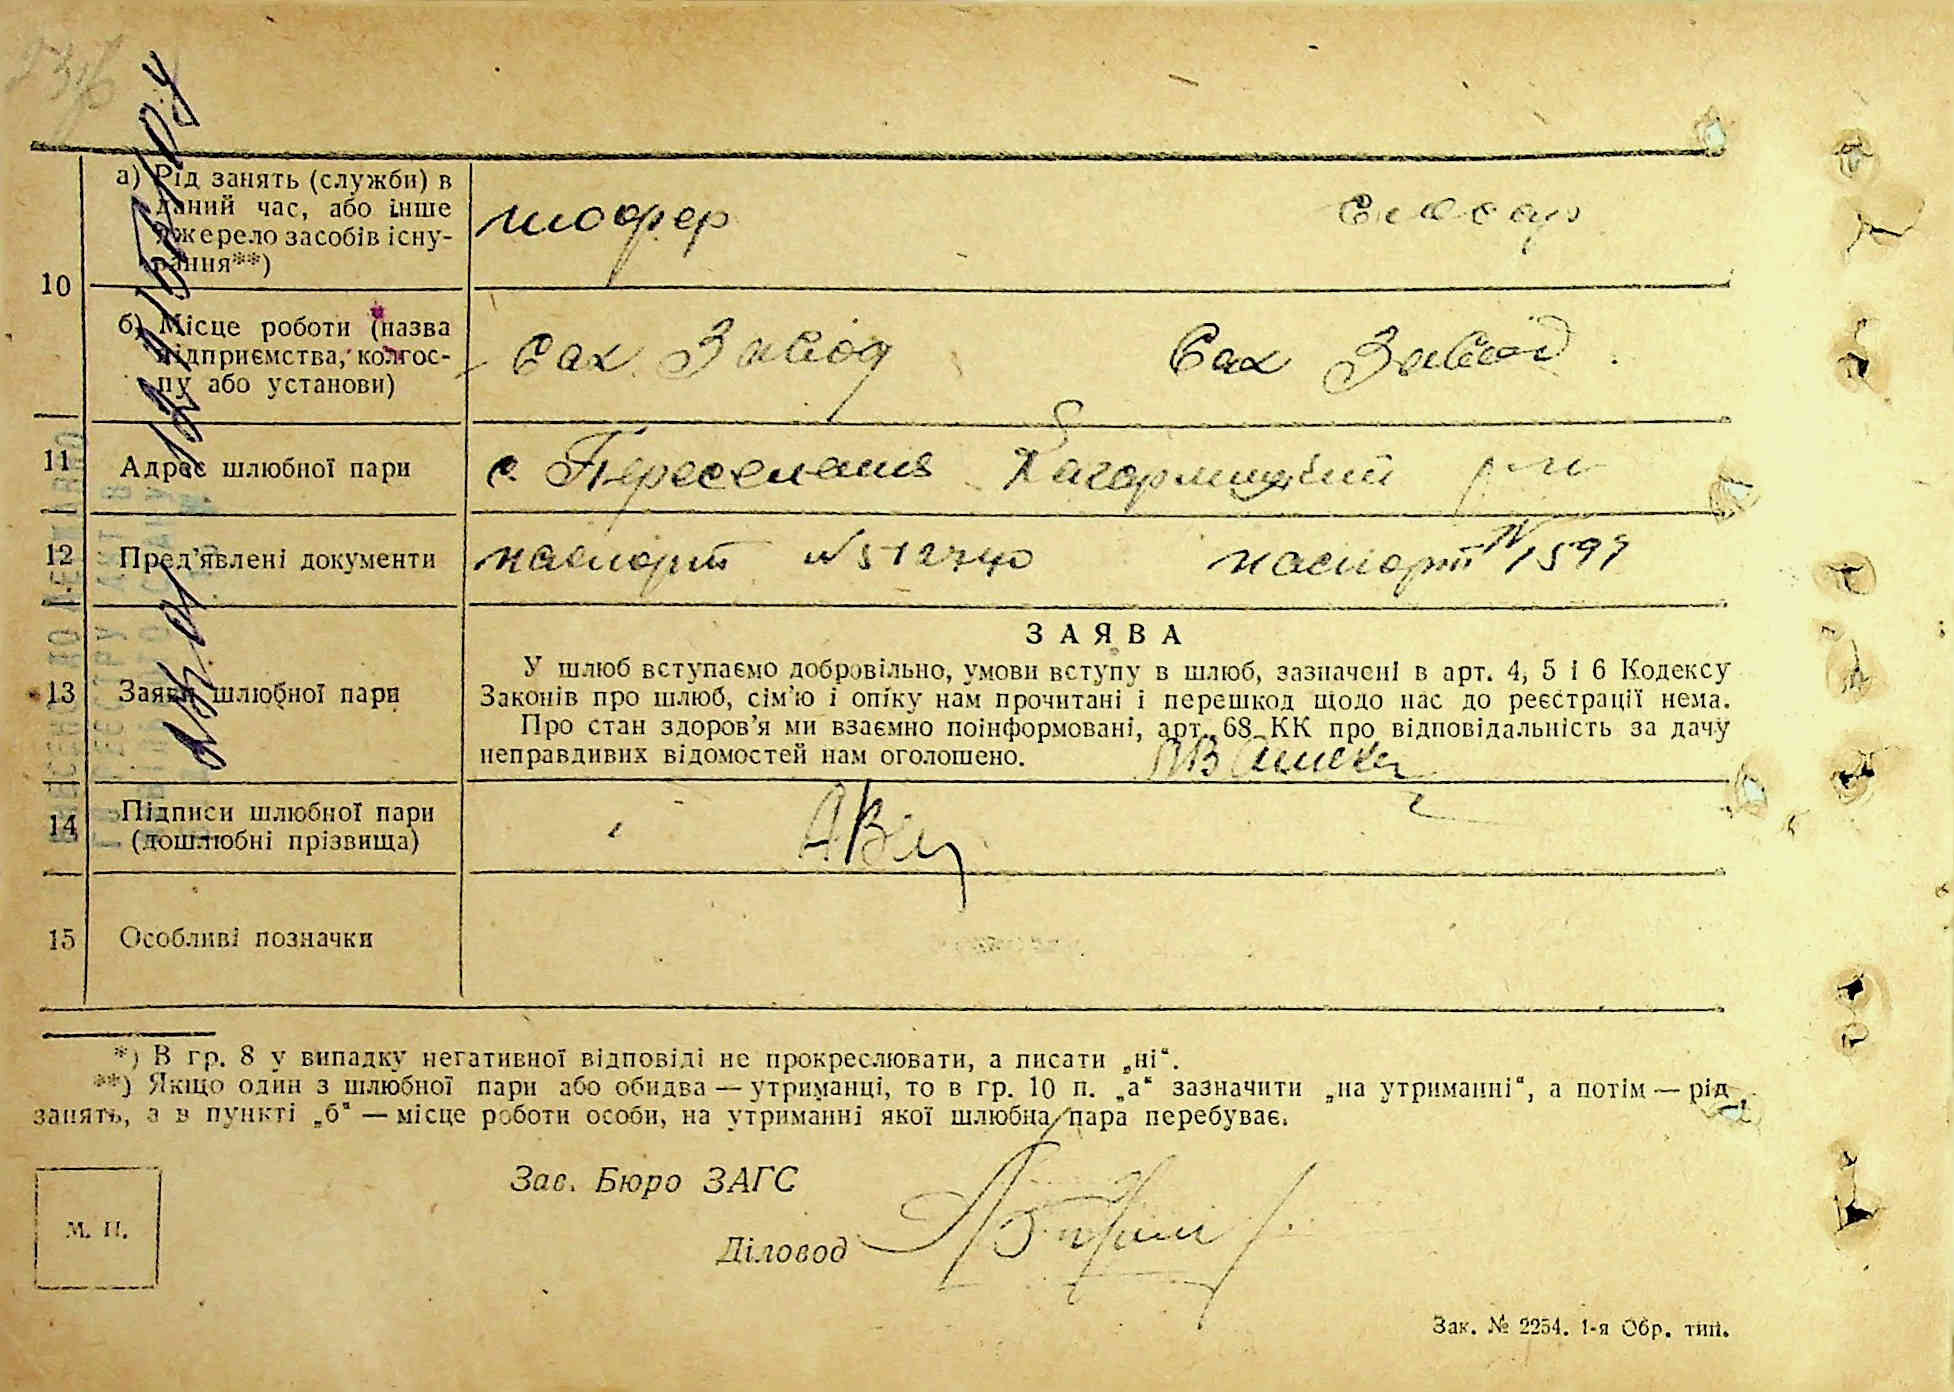 10
а) Рід занять (служби) в
даний час, або інше
джерело засобів існу-
вання**)
шофер
Слюсар
б) Місце роботи (назва
підприємства, колгос-
пу або установи)
Сах. Завод
Сах Завод
11
Адрес шлюбної пари
с. Переселення Кагарлицький р-н
12
Пред’явлені документи
паспорт
паспорт № 1599
13
Заяви шлюбної пари
ЗАЯВА
У шлюб вступаємо добровільно, умови вступу в шлюб, зазначені в арт. 4, 5 і 6 Кодексу
Законів про шлюб, сім’ю і опіку нам прочитані і перешкод щодо нас до реєстрації нема.
Про стан здоров’я ми взаємно поінформовані, арт. 68 КК про відповідальність за дачу
неправдивих відомостей нам оголошено.
14
Підписи шлюбної пари
(дошлюбні прізвища)
15
Особливі позначки
*) В гр. 8 у випадку негативної відповіді не прокреслювати, а писати „ні“.
**) Якщо один з шлюбної пари або обидва — утриманці, то в гр. 10 п. „а“ зазначити „на утриманні“, а потім — рід
занять, а в пункті „б“ — місце роботи особи, на утриманні якої шлюбна пара перебуває.
Зав. Бюро ЗАГС
М. П.
Діловод
Зак. № 2254. 1-я Обр. тип.